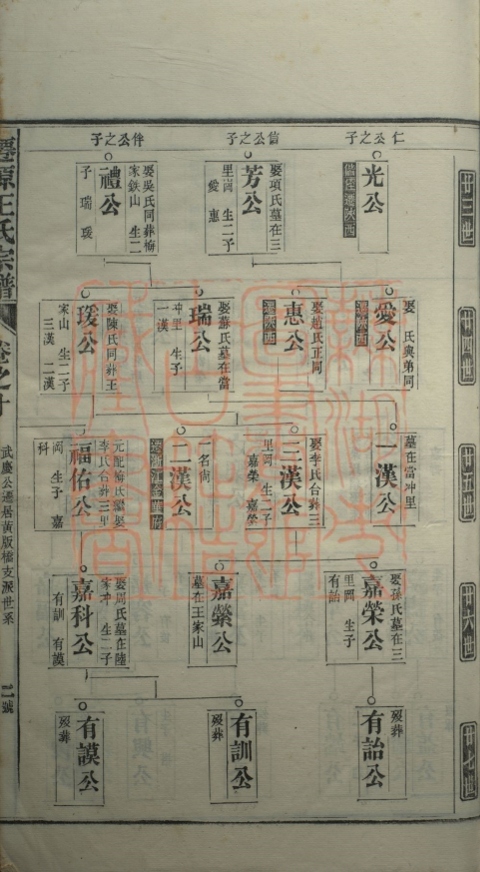 廿三世
仁公之子
光公
信公之子
芳公
娶項氏墓在三
里崗 生二子
愛 惠
伴公之子
禮公
娶吳氏同葬梅
家鉄山 生二
子 瑞 瑗
廿四世
愛公
娶 氏與弟同
遷陝西
惠公
娶趙氏正同
遷陝西
瑞公
娶蘇氏墓在當
冲里 生子
一漢
瑗公
娶陳氏同葬王
家山 生二子
三漢 二漢
廿五世
一漢公
墓在當冲里
三漢公
娶李氏合葬三
里崗 生二子
嘉榮 嘉縈
二漢公
一名尚
福佑公
元配梅氏繼娶
李氏合葬三里
崗 生子 嘉
科
廿六世
嘉榮公
娶孫氏墓在三
里岡 生子
有詒
嘉縈公
墓在王家山
嘉科公
娶周氏墓在陸
家冲 生二子
有訓 有謨
廿七世
有詒公
歿葬
有訓公
歿葬
有謨公
歿葬
王氏宗譜
卷之十
武慶公遷居黃版橋支派世系
二號